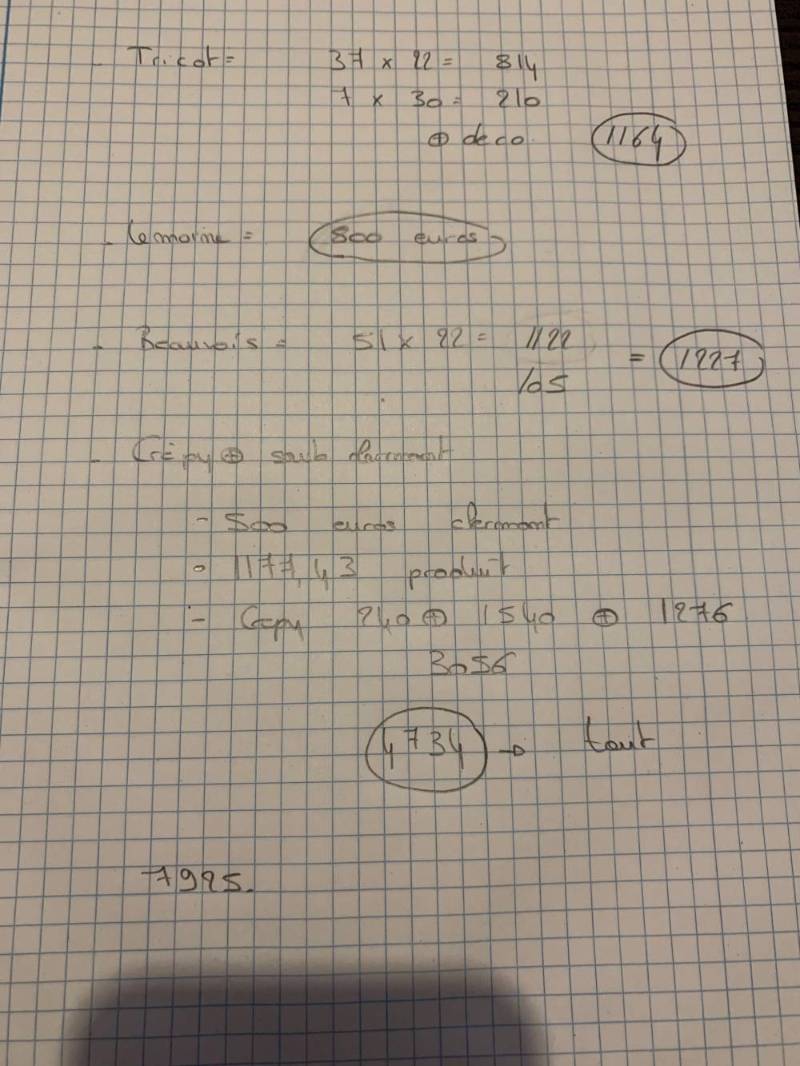 - Tricot = 37 x 22 = 814
7 x 30 = 210
⊕ deco. 1164
- Lemoine = 500 euros
- Beauvois = 51 x 22 = 1122
105 = 1227
- Crépy ⊕
- 500 euros clermont
- 1177,43 produit
- Crepy 240 ⊕ 1540 ⊕ 1276
3056
4734 → tout
7925.